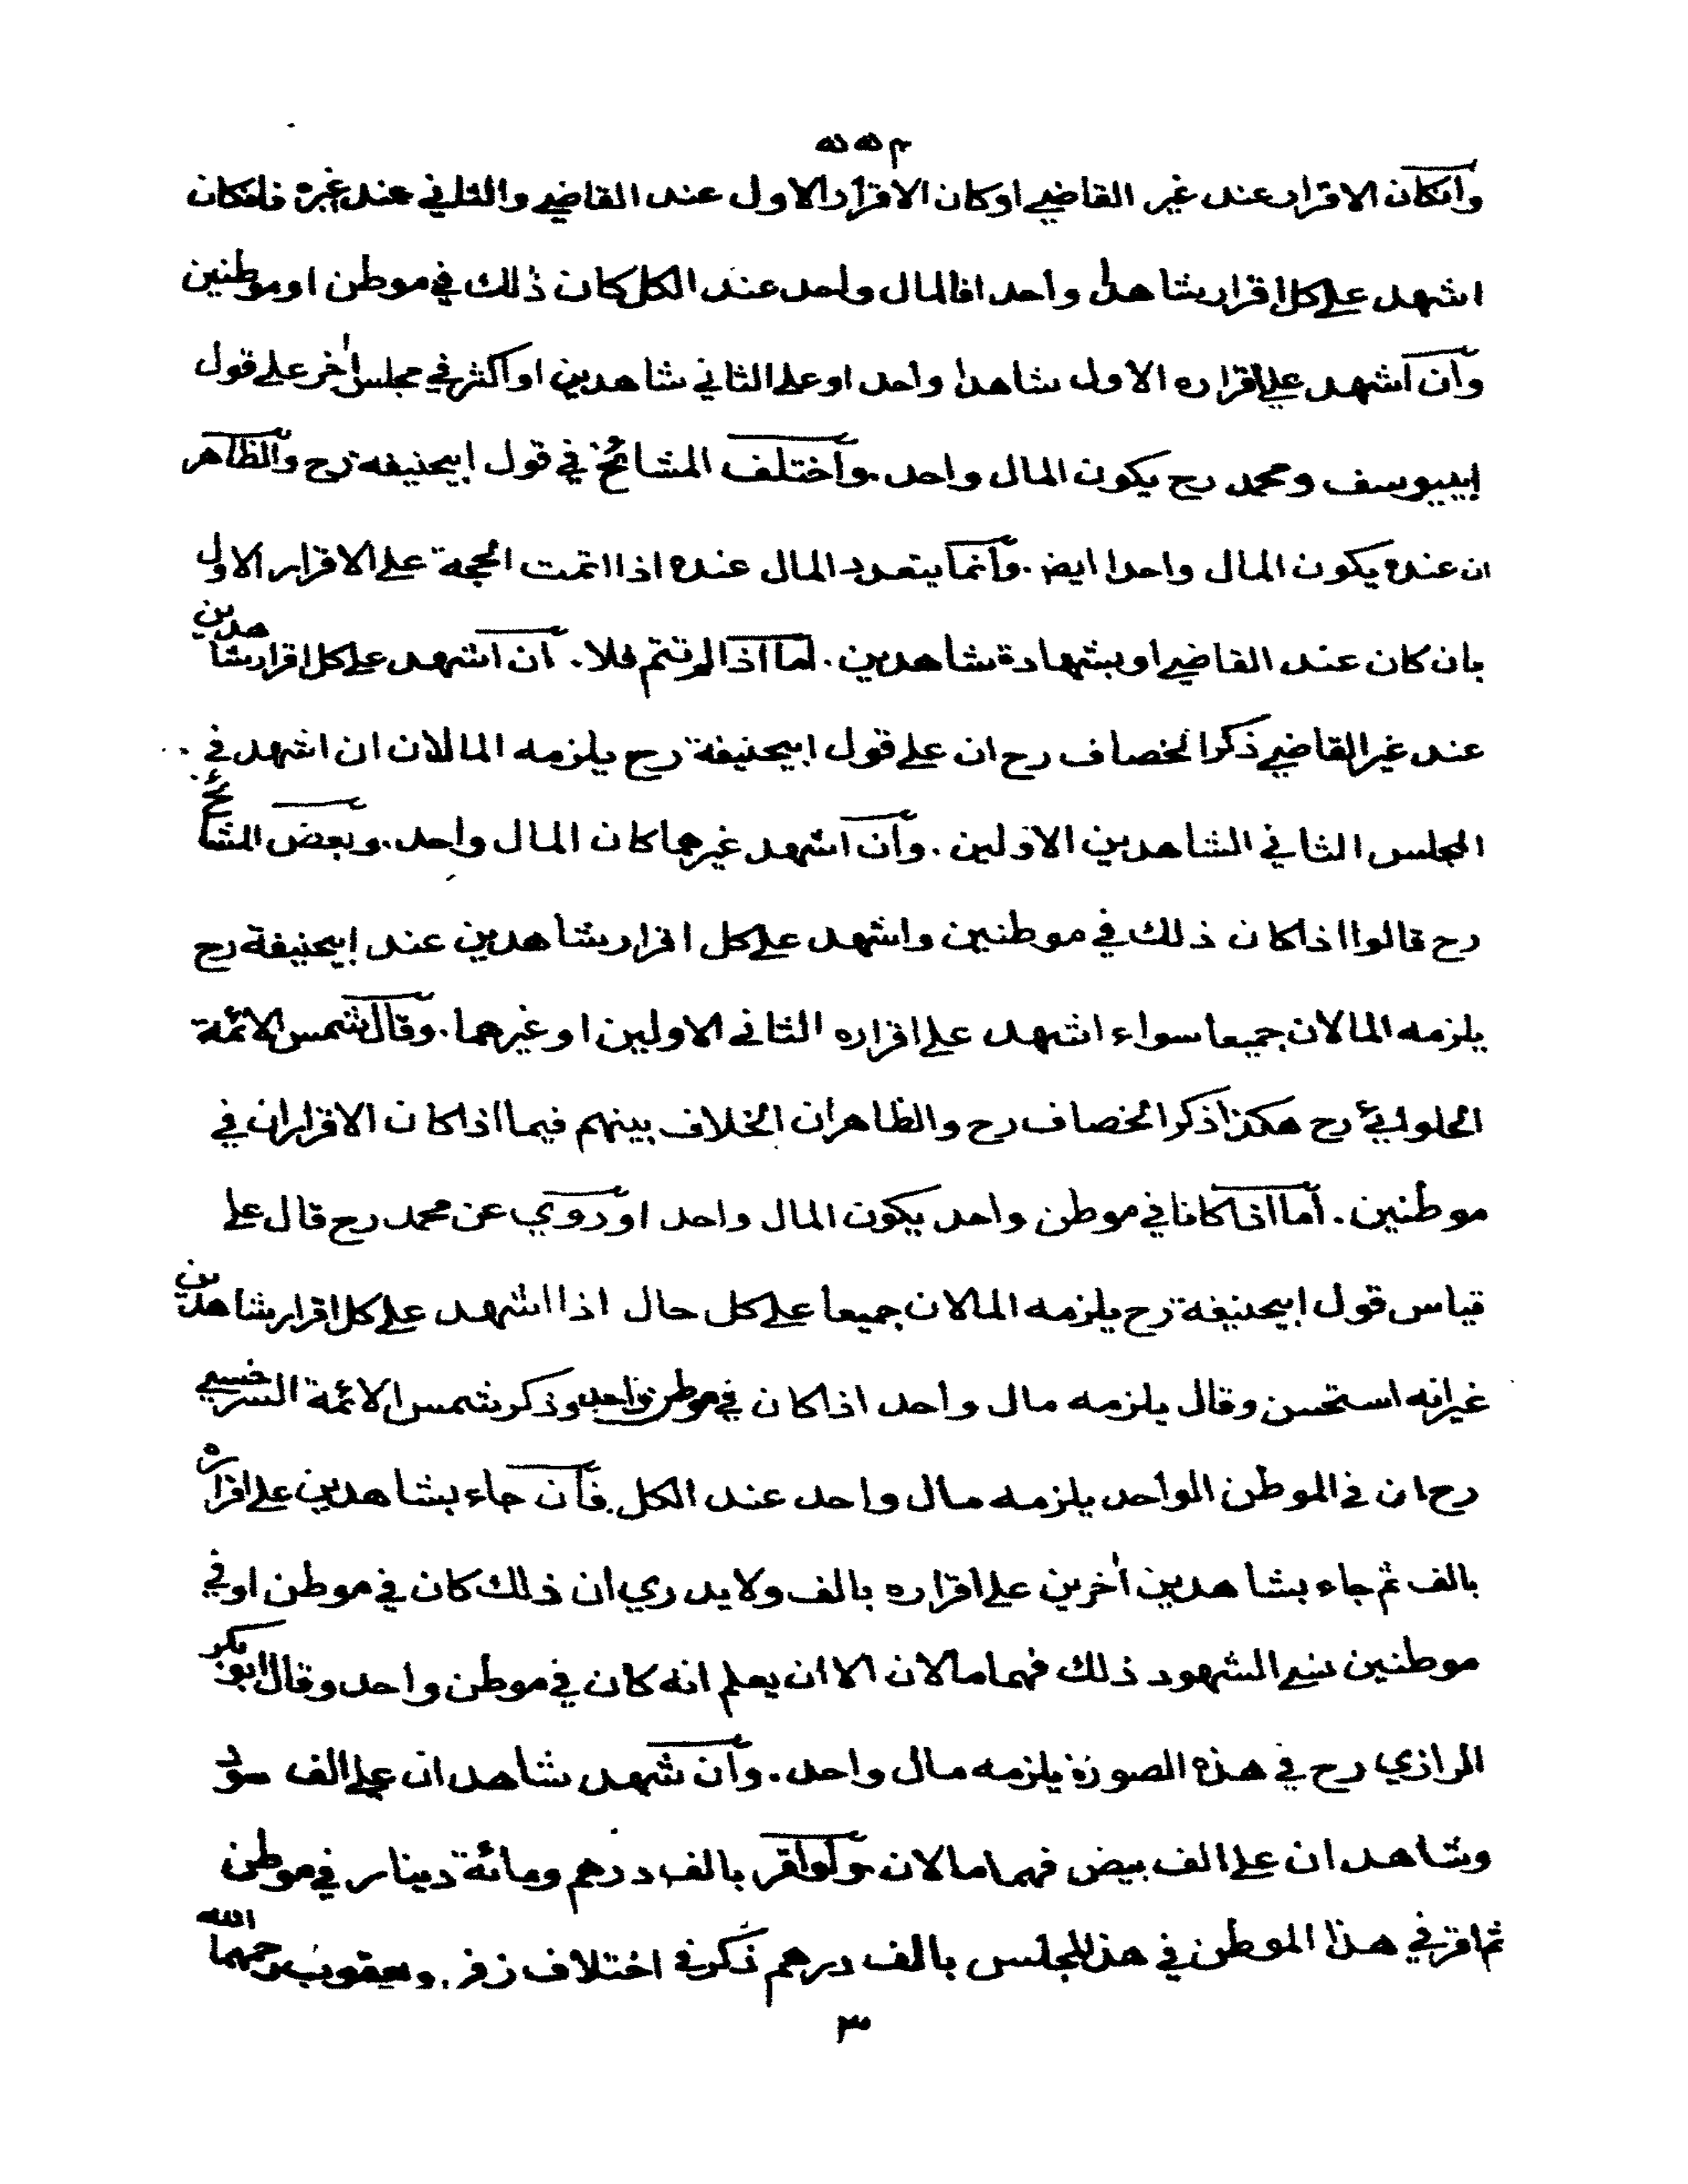 وانكان الاقرار عند غير القاضي اوكان الاقرار الاول عند القاضي والثاني عند غيره فانكان
اشهد على كل اقرار شاهدا واحدا فالمال واحد عند الكل كان ذلك في موطن او موطنين
وان اشهد على اقراره الاول شاهدا واحد او على الثاني شاهدين او اكثر في مجلس اٰخر على قول
ابييوسف ومحمد رح يكون المال واحد. واختلف المشائخ في قول ابيحنيفه رح والظاهر
ان عنده يكون المال واحدا ايض. وانما يتعدد المال عنده اذا اتمت الحجة على الاقرار الاول
بان كان عند القاضي او بشهادة شاهدين. اما اذا لم تتم فلا. ان اشهد على كل اقرار شاهدين
عند غير القاضي ذكر الخصاف رح ان على قول ابيحنيفة رح يلزمه المالان ان اشهد في
المجلس الثاني الشاهدين الاولين. وان اشهد غيرهما كان المال واحد. وبعض المشائخ
رح قالوا اذا كان ذلك في موطنين واشهد على كل اقرار شاهدين عند ابيحنيفة رح
يلزمه المالان جميعا سواء اشهد على اقراره الثاني الاولين او غيرهما. وقال شمس الائمة
الحلوائي رح هكذا ذكر الخصاف رح والظاهر ان الخلاف بينهم فيما اذا كان الاقراران في
موطنين. اما اذا كانا في موطن واحد يكون المال واحد او روي عن محمد رح قال على
قياس قول ابيحنيفة رح يلزمه المالان جميعا على كل حال اذا اشهد على كل اقرار شاهدين
غير انه استحسن وقال يلزمه مال واحد اذا كان في موطن واحد وذكر شمس الائمة السرخسي
رح ان في الموطن الواحد يلزمه مال واحد عند الكل. فان جاء بشاهدين على اقراره
بالف ثم جاء بشاهدين اٰخرين على اقراره بالف ولا يدري ان ذلك كان في موطن او في
موطنين نسي الشهود ذلك فهما مالان الا ان يعلم انه كان في موطن واحد وقال ابو بكر
الرازي رح في هذه الصورة يلزمه مال واحد. وان شهد شاهدان على الف سود
وشاهدان على الف بيض فهما مالان ولو اقر بالف درهم ومائة دينار في موطن
ثم اقر في هذا الموطن في هذا المجلس بالف درهم ذكر في اختلاف زفر. ويعقوب رحمهما الله
٣